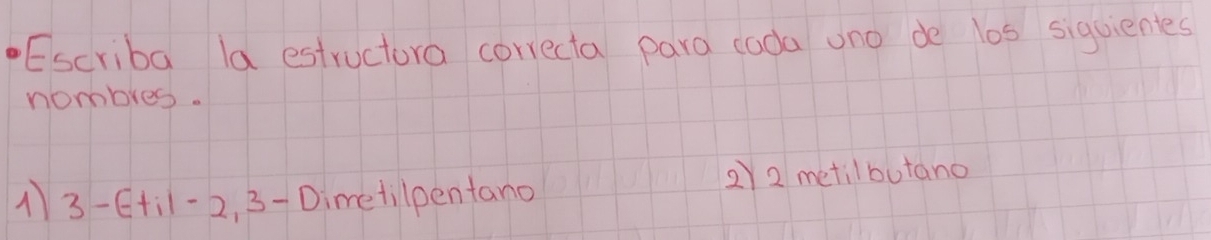 •Escriba la estructura correcta para cada uno de los siguientes
nombres.
1) 3-Etil-2,3-Dimetilpentano
2) 2 metilbutano